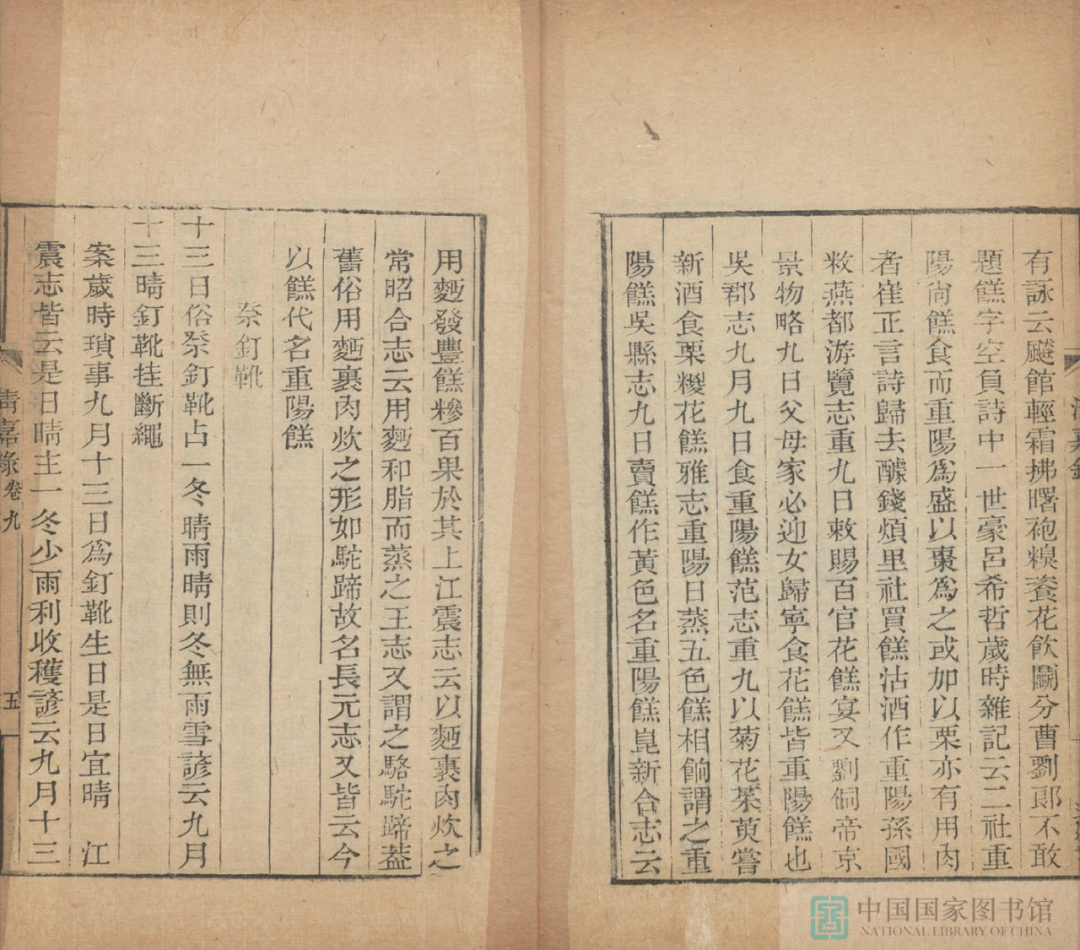 有詠云飈館輕霜拂曙袍糗餈花飲鬭分曹劉郎不敢
題餻字空負詩中一世豪呂希哲歲時雜記云二社重
陽尚餻食而重陽爲盛以棗爲之或加以栗亦有用肉
者崔正言詩歸去醵錢煩里社買餻沽酒作重陽孫國
敉燕都游覽志重九日敕賜百官花餻宴又劉侗帝京
景物略九日父母家必迎女歸寧食花餻皆重陽餻也
吳郡志九月九日食重陽餻范志重九以菊花茱萸嘗
新酒食栗糉花餻雅志重陽日蒸五色餻相餉謂之重
陽餻吳縣志九日賣餻作黃色名重陽餻崑新合志云
用麪發豐餻糝百果於其上江震志云以麪裹肉炊之
常昭合志云用麪和脂而蒸之王志又謂之駱駝蹄葢
舊俗用麪裹肉炊之形如駝蹄故名長元志又皆云今
以餻代名重陽餻
祭釘靴
十三日俗祭釘靴占一冬晴雨晴則冬無雨雪諺云九月
十三晴釘靴挂斷繩
案歲時瑣事九月十三日爲釘靴生日是日宜晴 江
震志皆云是日晴主一冬少雨利收穫諺云九月十三
淸嘉錄 卷九 五
中国国家图书馆
NATIONAL LIBRARY OF CHINA